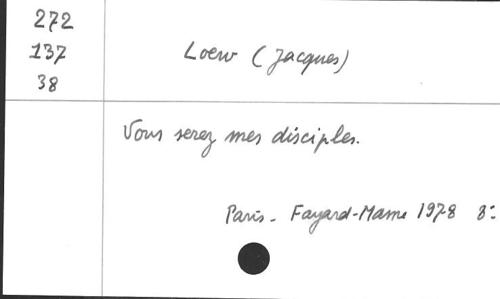 272
137
38
Loew (Jacques)
Vous serez mes disciples.
Paris - Fayard-Mame 1978 8°